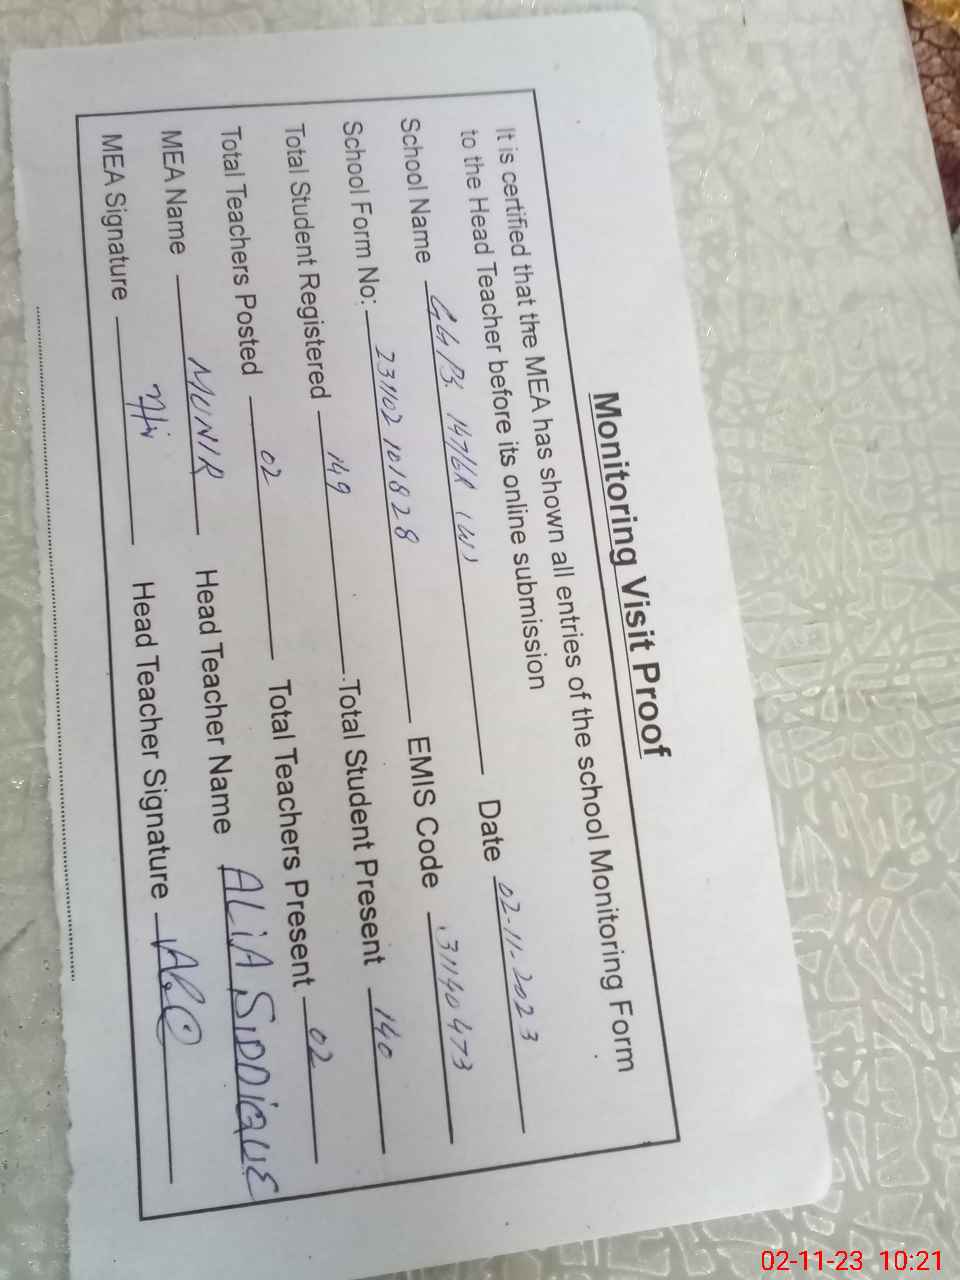 Monitoring Visit Proof
It is certified that the MEA has shown all entries of the school Monitoring Form
to the Head Teacher before its online submission
School Name GGPS. 147/6R (W) Date 02-11-2023
School Form No: 231102101828 EMIS Code 31140473
Total Student Registered 149 Total Student Present 140
Total Teachers Posted 02 Total Teachers Present 02
MEA Name MUNIR Head Teacher Name ALiA SiDDiQUE
MEA Signature Head Teacher Signature
02-11-23 10:21